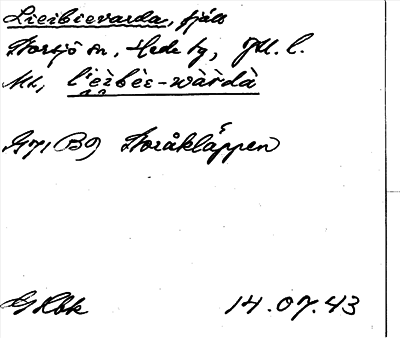 Lieibievarda, fjäll
Storsjö sn, Hede tg, Jtl. l.
Mt, l'ieìbèe-wàrdà
G71 (B9) Storåkläppen
14.07.43